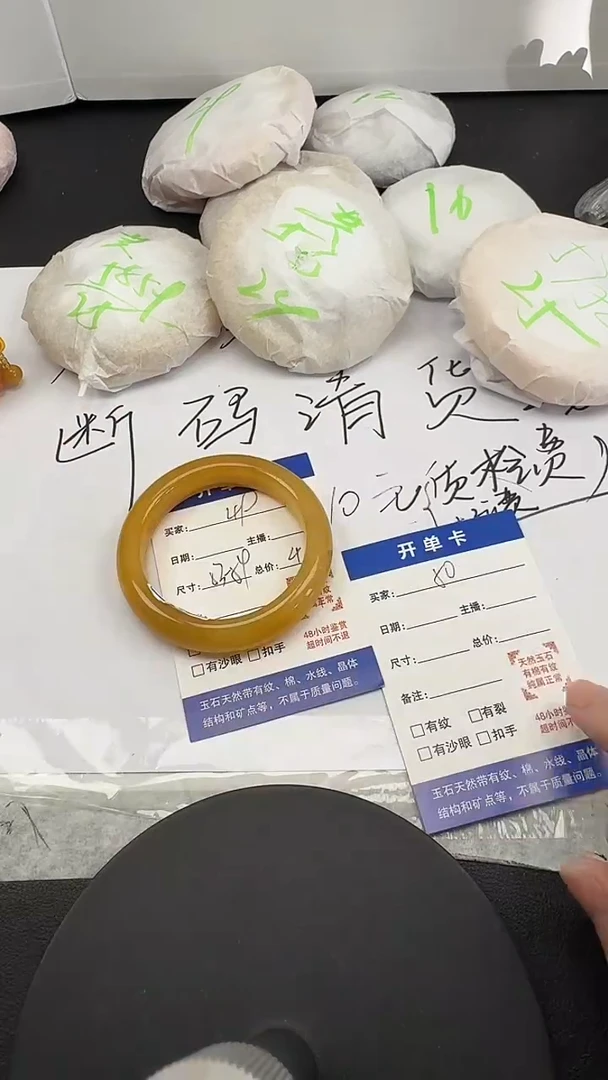 12
16
24
24
断码清货
10元质检费
开单卡
买家: 40
日期: 主播:
尺寸: 总价: 4
48小时鉴赏
超时间不退
有沙眼 扣手
玉石天然带有纹、棉、水线、晶体
结构和矿点等，不属于质量问题。
开单卡
买家: 80
日期: 主播:
尺寸: 总价:
备注:
天然玉石
有棉有纹
纯属正常
有纹 有裂
48小时
超时间不
有沙眼 扣手
玉石天然带有纹、棉、水线、晶体
结构和矿点等，不属于质量问题。